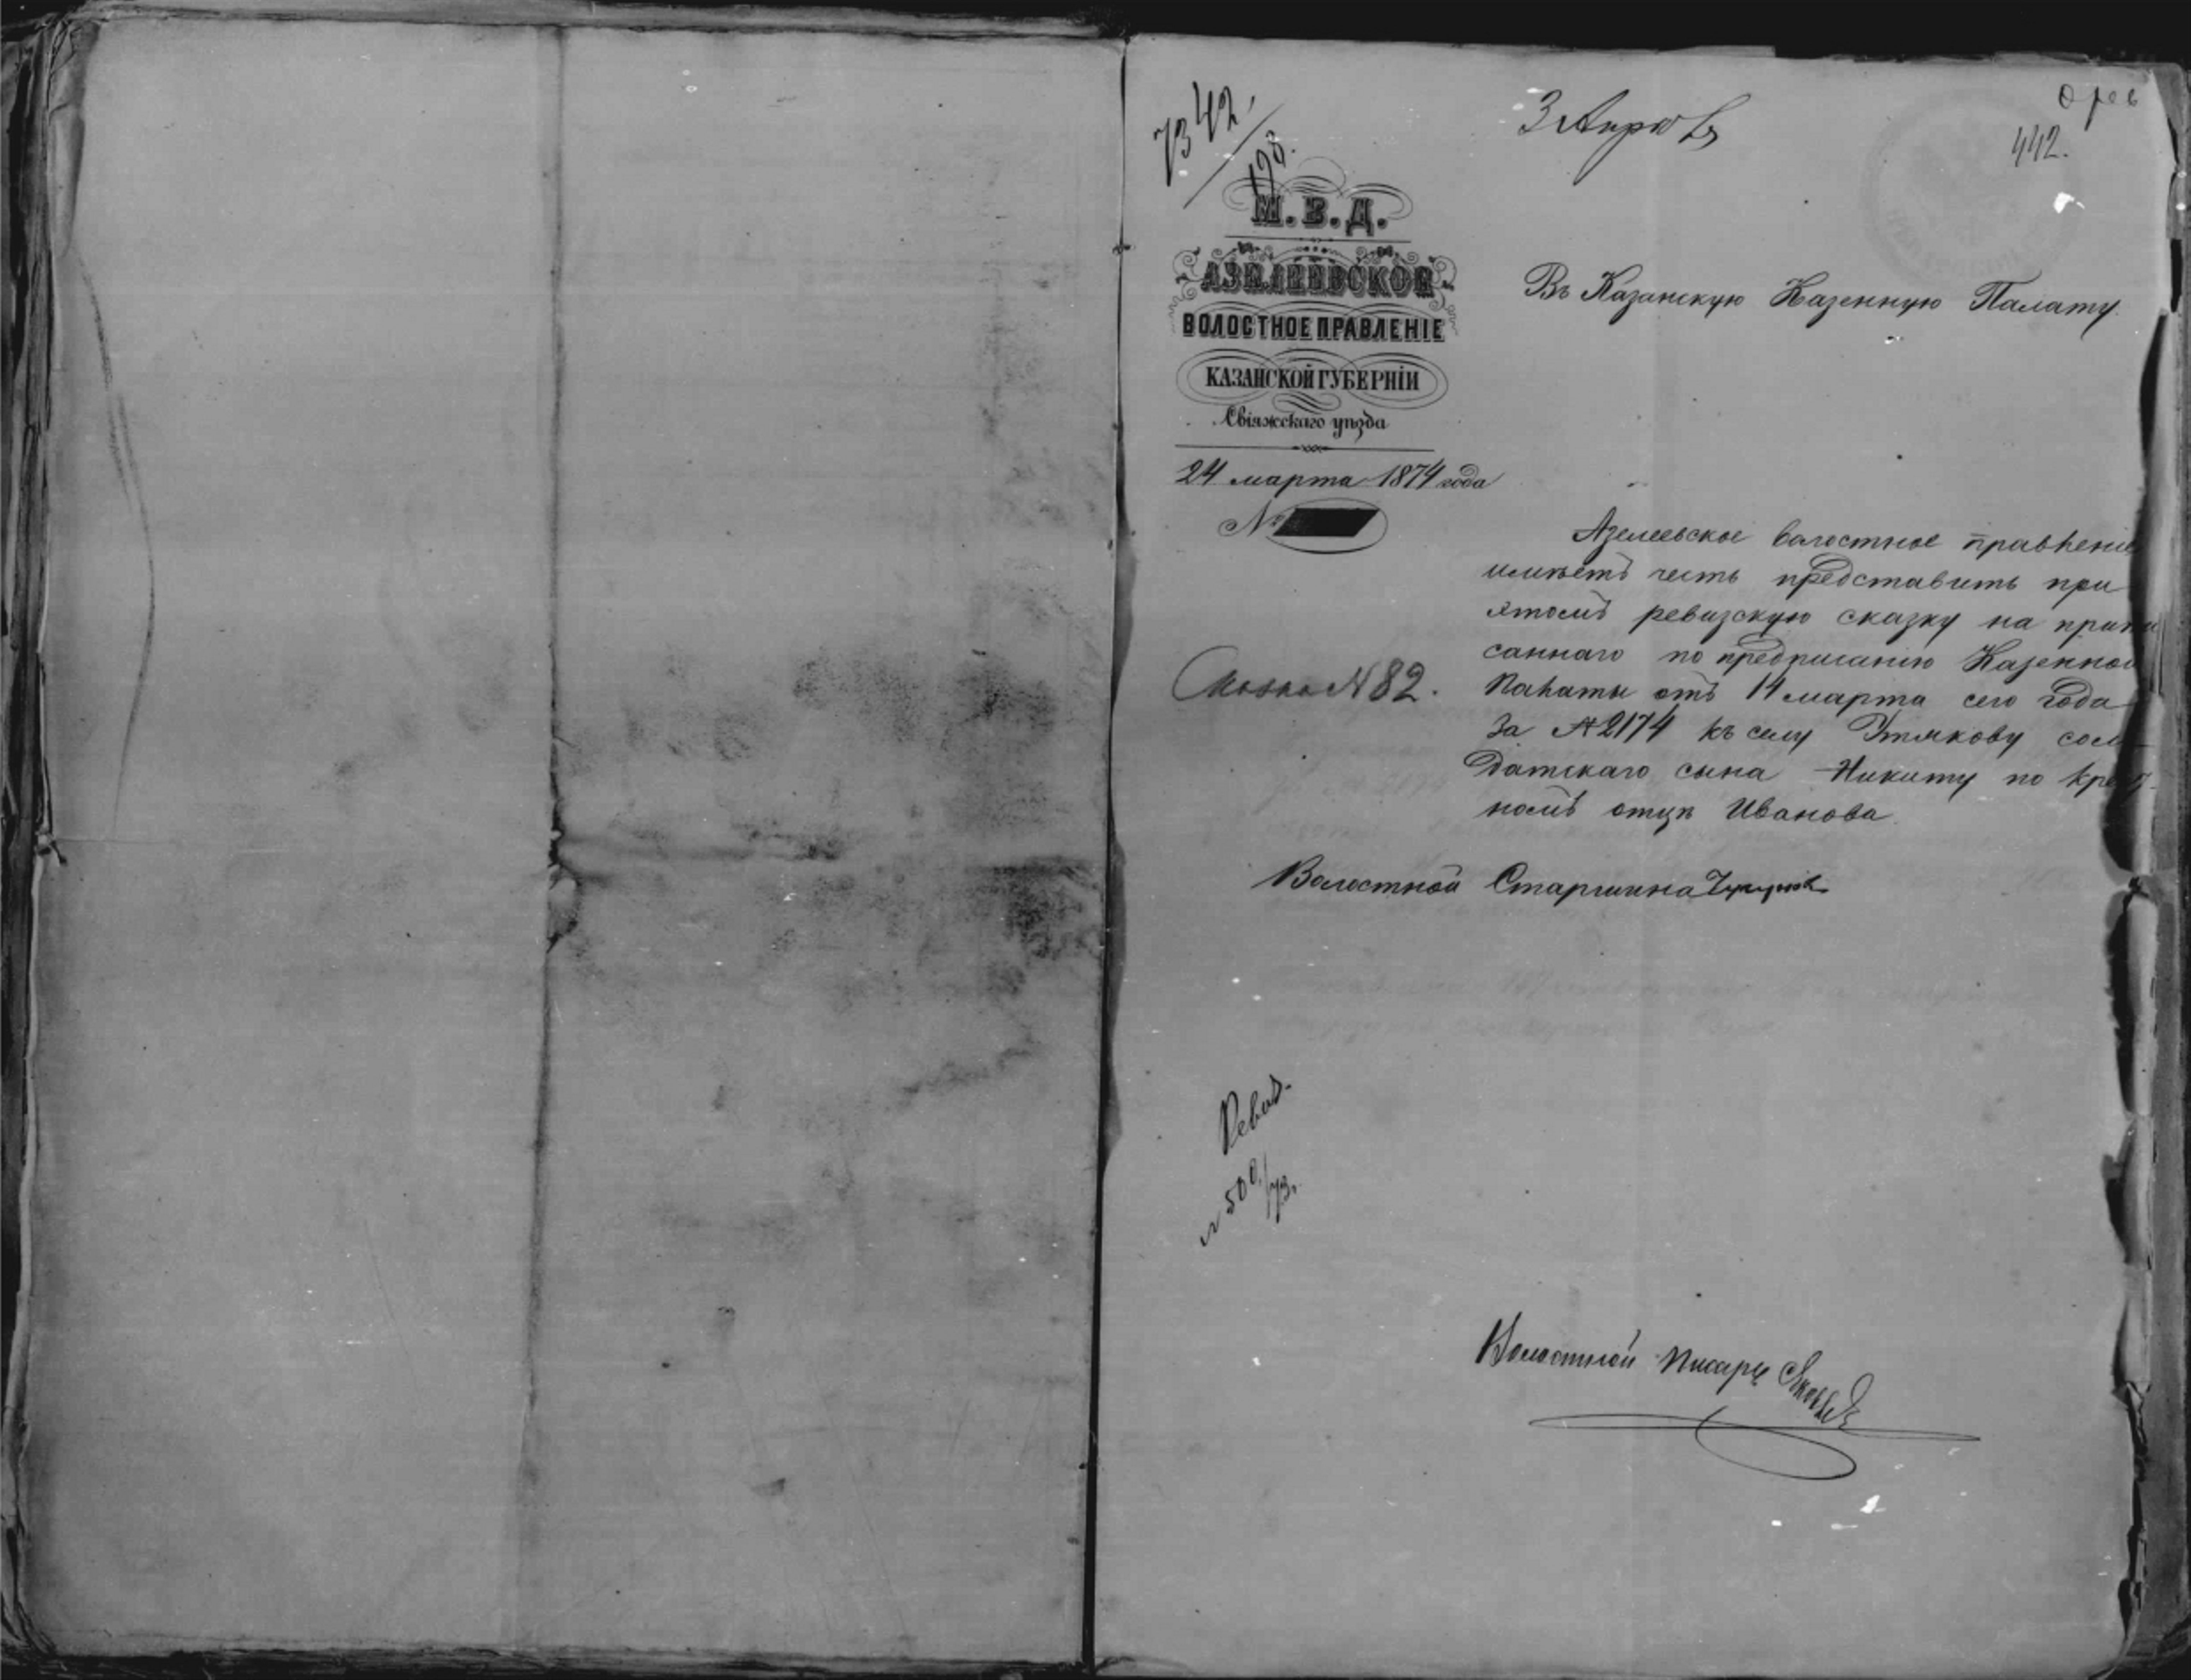 7342,
198.
3 Апрѣля
О рев
442.
М. В. Д.
АЗЕЛЕЕВСКОЕ
ВОЛОСТНОЕ ПРАВЛЕНІЕ
КАЗАНСКОЙ ГУБЕРНІИ
Свіяжскаго уѣзда
24 марта 1874 года
№
Въ Казанскую Казенную Палату.
Азелеевское волостное правленіе
имѣетъ честь представить при
этомъ ревизскую сказку на припи
саннаго по предписанію Казенной
Палаты отъ 14 марта сего года
за № 2174 къ селу Утякову сол-
датскаго сына Никиту по крест-
номъ отцѣ Иванова.
№ 82.
Волостной Старшина
Ревиз.
500/73.
Волостной Писарь Яковлев